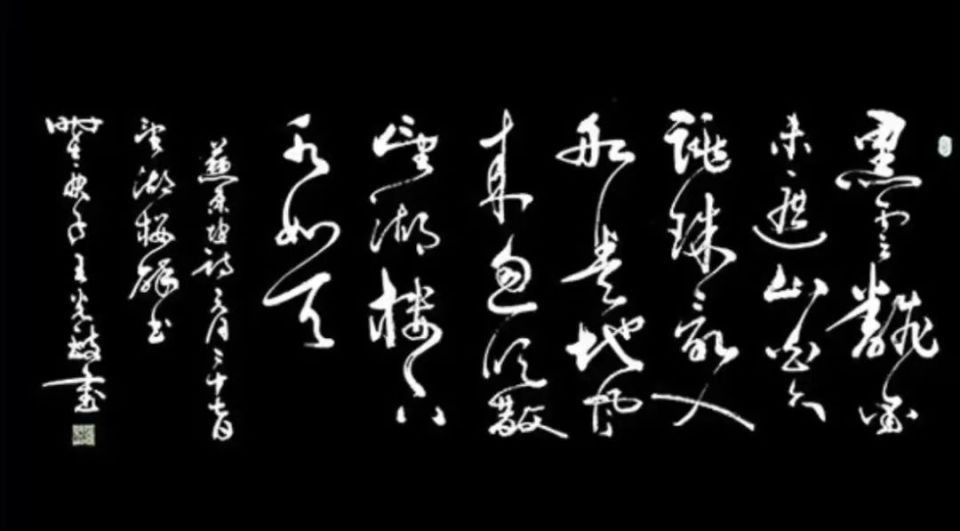 黑雲飜墨
未遮山白雨
跳珠亂入
船卷地風
來忽吹散
望湖樓下
水如天
蘇東坡詩六月二十七日
望湖樓醉書
庚子王光書